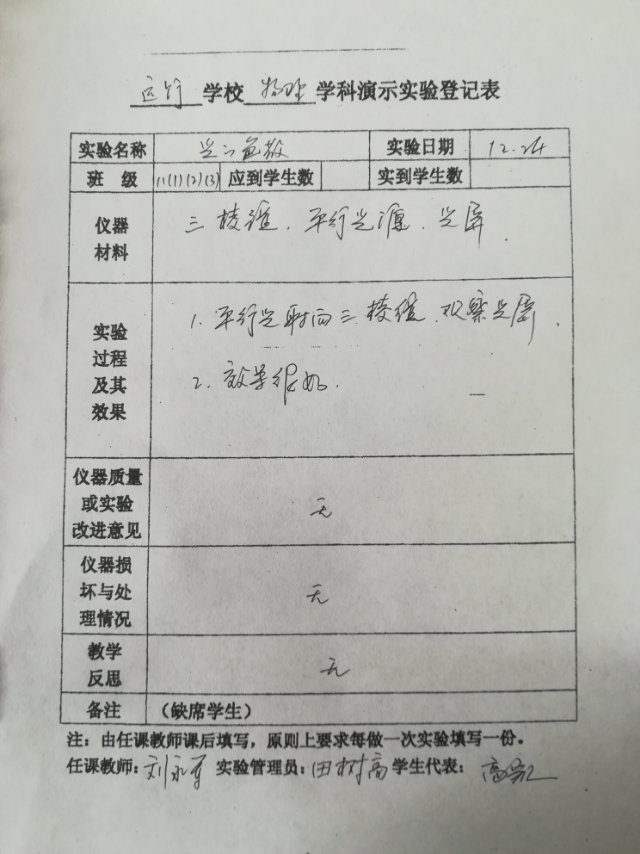 学校 物理 学科演示实验登记表
实验名称 光的色散 实验日期 12.24
班 级 (1)(2)(3) 应到学生数 实到学生数
仪器材料 三棱镜、平行光源、光屏.
实验过程及其效果 1. 平行光射向三棱镜、观察光屏.
2. 效果很好.
仪器质量或实验改进意见 无
仪器损坏与处理情况 无
教学反思 无
备注 (缺席学生)
注：由任课教师课后填写，原则上要求每做一次实验填写一份。
任课教师：刘永军 实验管理员：田树高 学生代表：